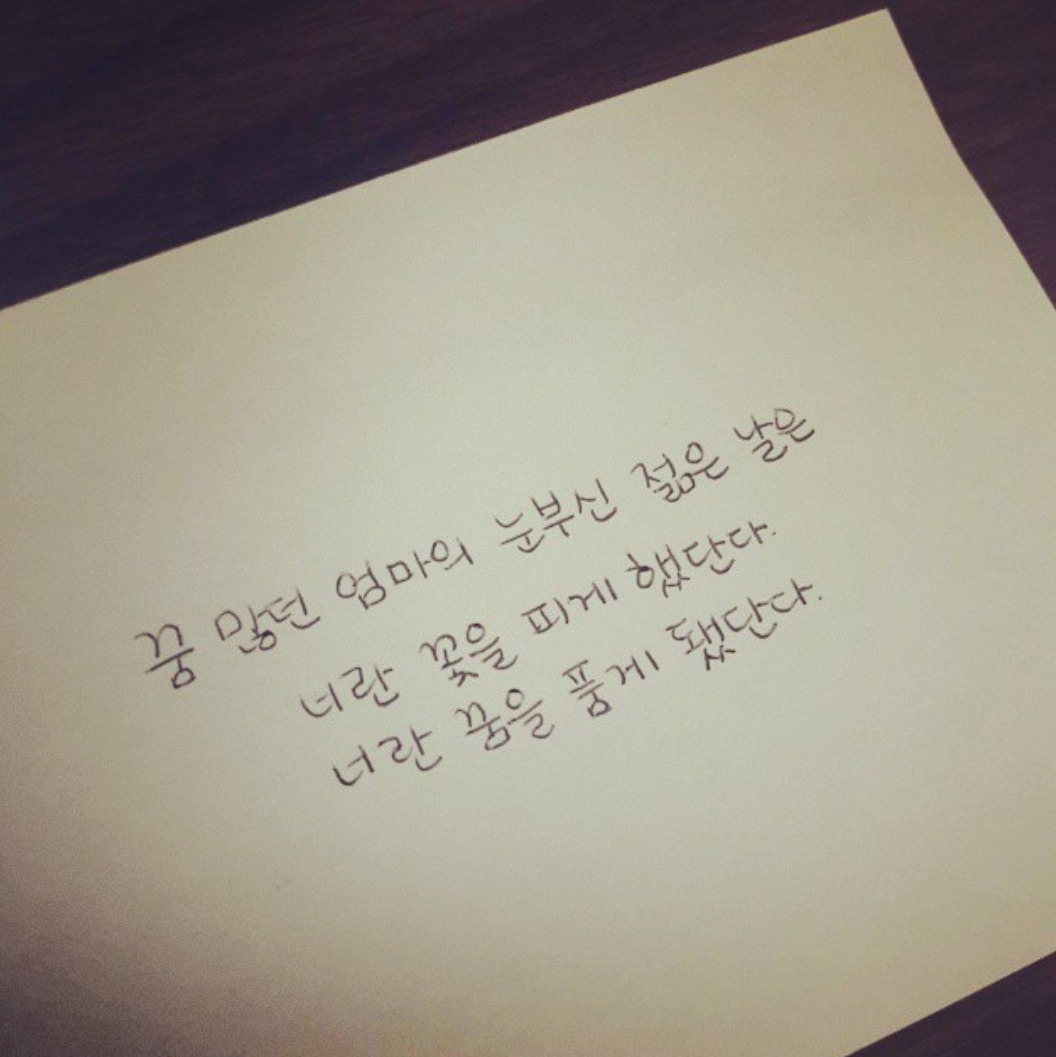 꿈 많던 엄마의 눈부신 젊은 날은
너란 꽃을 피게 했단다.
너란 꿈을 품게 됐단다.